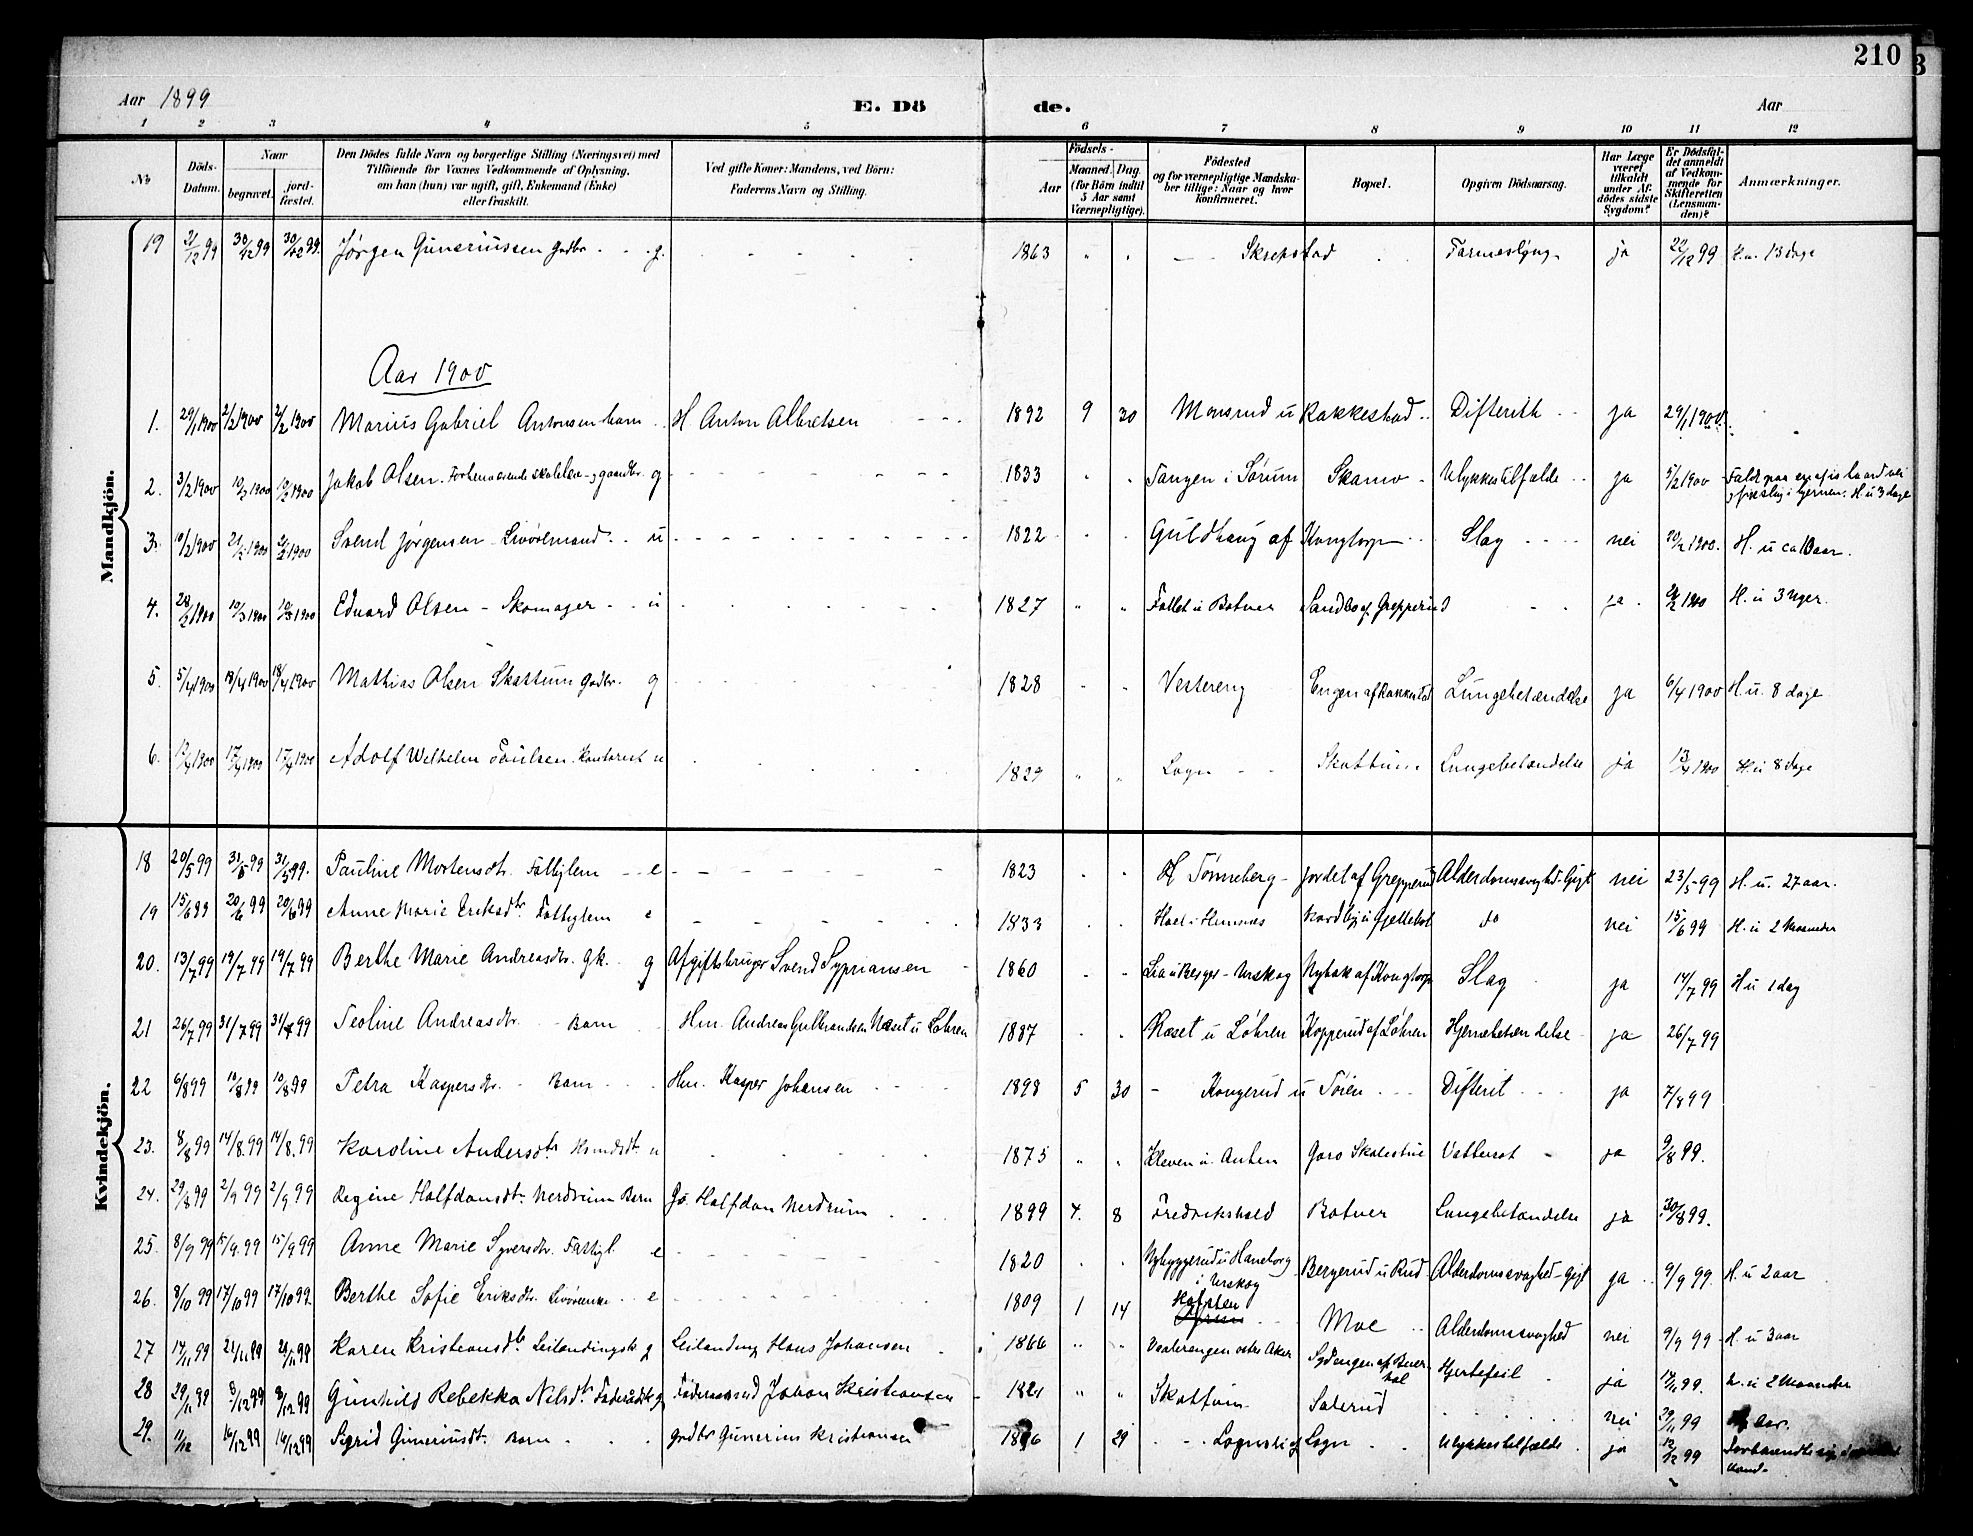 210
Aar 1899 E. Dö de. Aar
1 2 3 4 5 6 7 8 9 10 11 12
No Döds-Datum. Naar begravet. jord-fæstet. Den Dödes fulde Navn og borgerlige Stilling (Næringsvei) med Tilföiende for Voxnes Vedkommende af Oplysning, om han (hun) var ugift, gift, Enkemand (Enke) eller fraskilt. Ved gifte Koner: Mandens, ved Börn: Faderens Navn og Stilling. Födsels- Aar Maaned. Dag (for Börn indtil 5 Aar samt Værnepligtige). Födested og for værnepligtige Mandska-ber tillige: Naar og hvor konfirmeret. Bopæl. Opgiven Dödsaarsag. Har Læge været tilkaldt under Af-dödes sidste Sygdom? Er Dödsfal-det anmeldt af Vedkom-mende for Skifteretten (Lensman-den)? Anmærkninger.
Mandkjön.
19 21/12 99 30/12 99 30/12 99. Jørgen Guneriussen gadbr. g. 1863 Skrepstad Tarmeslyng ja 22/12 99 H.u. 13 dage
Aar 1900
1. 29/1 1900 2/2 1900 2/2 1900 Marius Gabriel Antonsen barn H. Anton Albretsen 1892 9 30 Monsrud u Rakkestad Difterith ja 29/1 1900.
2. 3/2 1900 10/2 1900 10/2 1900 Jakob Olsen. Forhenværende skolelær- g gaardbr. g 1833 Tangen i Sørum Skamo Ulykkestilfælde ja 5/2 1900 Faldt paa en af is haard vei
i hjernen. H u 3 dage
3. 10/2 1900 21/2 1900 21/2 1900 Svend Jørgensen Livøremand u 1822 Guldhaug af Kongtorp Slag nei 20/2 1900. H. u ca 10 aar.
4. 28/2 1900 10/3 1900 10/3 1900 Edvard Olsen - Skomager u 1827 Fallet u Botner Sandbo af Grepperud ja 1900 H. u 3 uger.
5. 5/4 1900 18/4 1900 18/4 1900 Mathias Olsen Skattum gadbr. g 1828 Vestereng Engen af Rakkestad Lungebetændelse ja 6/4 1900 H u. 8 dage
6. 12/4 1900 17/4 1900 17/4 1900 Adolf Wilhelm Paulsen. Kontorist u 1829 Logn Skattum Lungebetændelse ja 13/4 1900 H. u 8 dage
Kvindekjön.
18 20/5 99 31/5 99 31/5 99. Pauline Mortensdt. Fattiglem e 1823 Tønneberg - Jordet af Grepperud Alderdomssvaghed-Gigt nei 23/5-99 H. u. 27 aar.
19 15/6 99 20/6 99 20/6 99 Anne Marie Eriksdtr. Fattiglem e 1833 Hoel i Hemnes Nordby u Gjellebøl do nei 15/6 99 H. u 2 Maaneder
20. 13/7 99 19/7 99 19/7 99 Berthe Marie Andreasdtr. Gk. g Afgiftsbruger Svend Syprianssen 1860 Lia u Berger - Urskog Nybak af Kongtorp Slag ja 14/7 99 H u 1 dag
21 26/7 99 31/7 99 31/7 99 Teoline Andreasdtr. Barn Hm. Andreas Gulbrandsen Næset u Løhren 1887 Næset u Løhren Kopperud af Løhren Hjernebetændelse ja 26/7 99
22 6/8 99 10/8 99 10/8 99 Petra Kaspersdtr. Barn Hm. Kasper Johansen 1898 5 30 Kongerud u Tøien Difterit ja 7/8 99
23. 8/8 99 14/8. 99 14/8. 99 Karoline Andersdtr. u 1875 Kleven u. Anten Garo Skolestue Vattersot ja 9/8 99.
24. 29/8 99 2/9 99 2/9 99 Regine Halfdansdt. Nerdrum Barn Go. Halfdan Nerdrum 1899 4. 8 Fredrikshald Botner Lungebetændelse ja 30/8 99.
25. 8/9 99 15/9. 99 15/9 99 Anne Marie Syversdtr. Fattigl. e 1820 Nybyggerud u Haneborg i Urskog Bergerud u Rud Alderdomssvaghed-Gigt ja 9/9 99. H. u 2 aar
26. 8/10 99 17/10 99 17/10 99. Berthe Sofie Eriksdtr. Livørenke e 1809 1 14 Kolsten Moe Alderdomssvaghed nei 9/9 99 H. u 3 aar
27 17/11 99 21/11 99 21/11 99 Karen Kristiansdtr Leilændingsk g Leilænding Hans Johansen 1866 Vaalerengen østre Aker Sydengen af Buerhol Hjertefeil ja 17/11 99. H. u 2 Maaneder
28 29/11 99 8/12 99 8/12 99 Gunhild Rebekka Nilsdtr Føderaadsk g Føderaadsmd Johan Kristiansen 1821 Skattum Salerud nei 29/11 99 aar.
29. 11/12 16/12 99 16/12 99 Sigrid Guneriusdt. Barn gadbr Gunerius Kristiansen 1896 1 29 Lognsli af Logn Ulykkestilfælde ja 12/12 99 Forbrændte sig
vand.